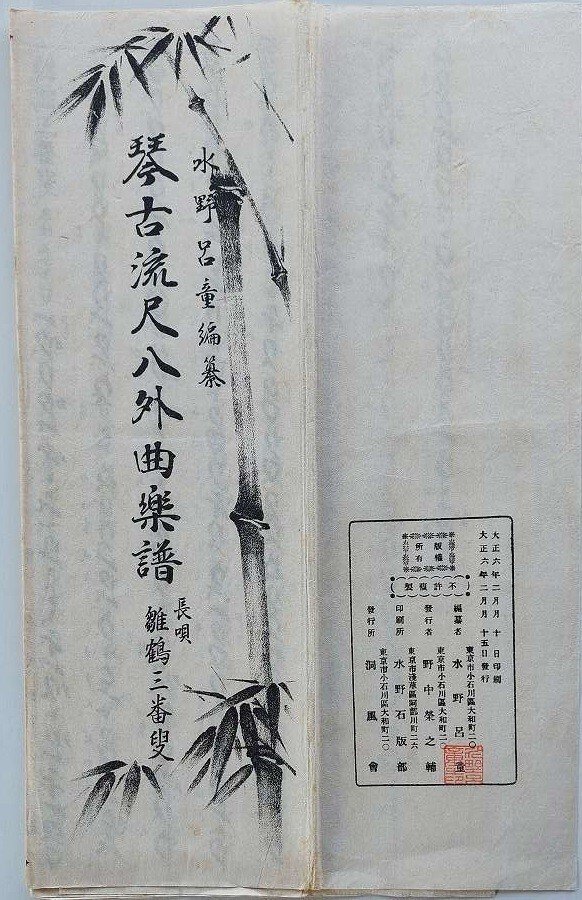 水野呂童編纂
琴古流尺八外曲樂譜
長唄
雛鶴三番叟
大正六年二月十日印刷
大正六年二月十五日發行
版權所有
(不許複製)
編纂者 東京市小石川區大和町二〇 水野呂童
發行者 東京市小石川區大和町二〇 野中榮之輔
印刷所 東京市淺草區阿部川町二六 水野石版部
發行所 東京市小石川區大和町二〇 洞風會